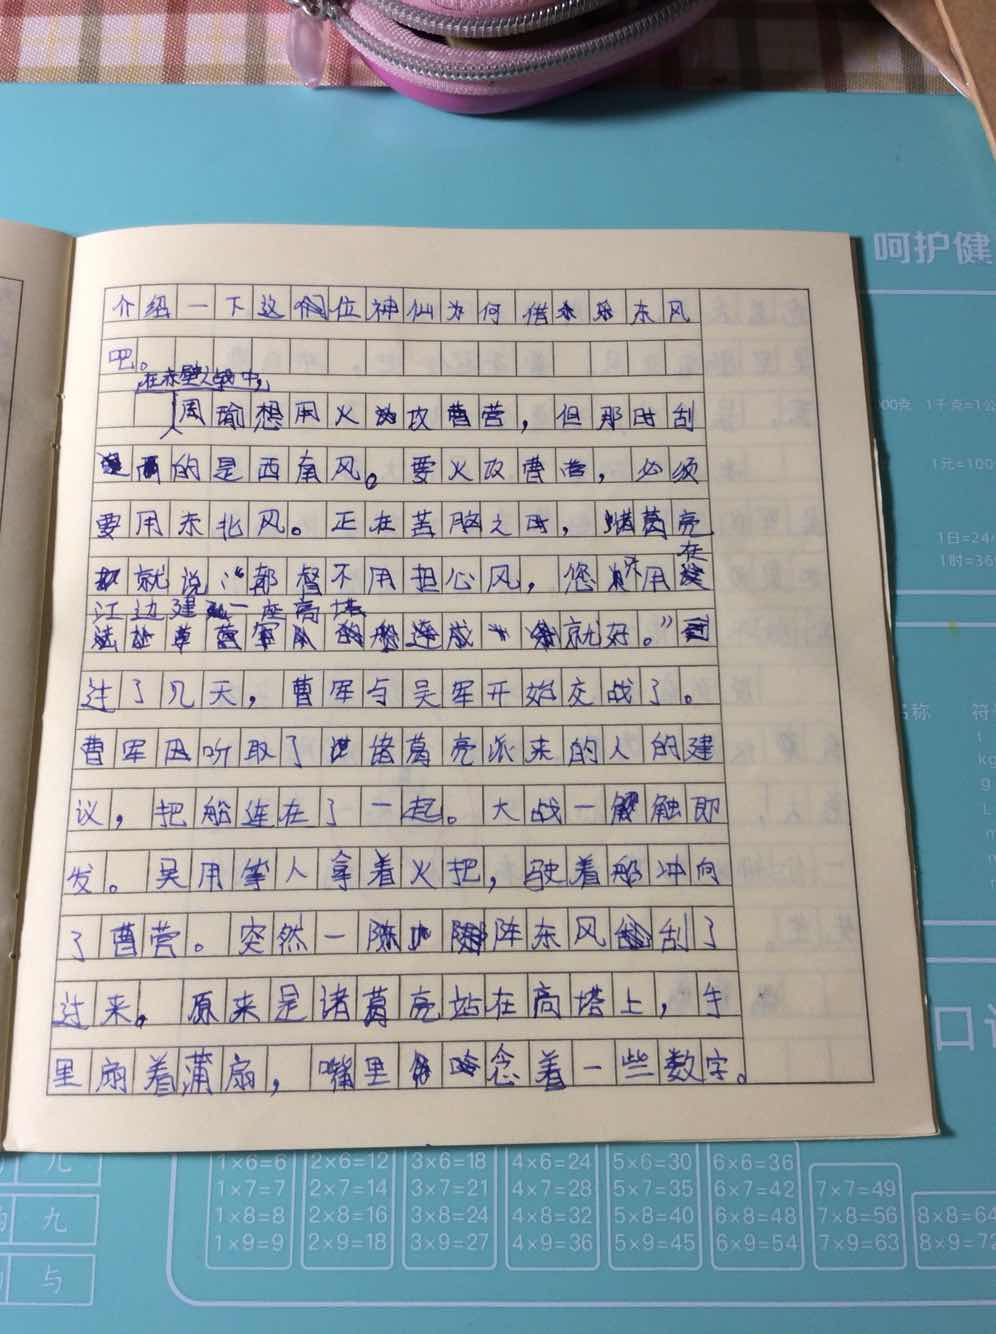 呵护健
介绍一下这位神仙为何借来东风
吧。
在赤壁之战中，
周瑜想用火攻曹营，但那时刮
的是西南风。要火攻曹营，必须
要用东北风。正在苦脑之时，诸葛亮
就说：“都督不用担心风，您只用在
江边建一座高塔
就好。”
过了几天，曹军与吴军开始交战了。
曹军因听取了诸葛亮派来的人的建
议，把船连在了一起。大战一触即
发。吴用等人拿着火把，驶着船冲向
了曹营。突然一阵东风刮了
过来。原来是诸葛亮站在高塔上，手
里扇着蒲扇，嘴里念着一些数字。
00克 1千克=1公
1元=100
1日=24
1时=36
名称 符
kg
g
口
九
与
1×6=6 2×6=12 3×6=18 4×6=24 5×6=30 6×6=36
1×7=7 2×7=14 3×7=21 4×7=28 5×7=35 6×7=42 7×7=49
1×8=8 2×8=16 3×8=24 4×8=32 5×8=40 6×8=48 7×8=56 8×8=64
1×9=9 2×9=18 3×9=27 4×9=36 5×9=45 6×9=54 7×9=63 8×9=72